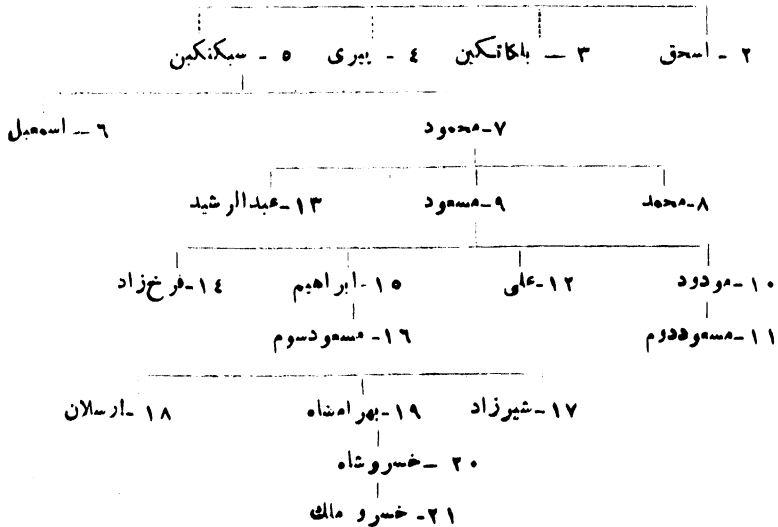 ۲ - اسحق ۳ - بلکاتکین ٤ - پیری ٥ - سبکتکین
۷-محمود ٦ - اسمعیل
۸-محمد ۹-مسعود ۱۳-عبدالرشید
۱۰-مودود ۱۲-علی ۱٥-ابراهیم ۱٤-فرخ‌زاد
۱۱-مسعوددوم ۱٦- مسعودسوم
۱۷-شیرزاد ۱۹-بهرامشاه ۱۸-ارسلان
۲۰ -خسروشاه
۲۱- خسرو ملك